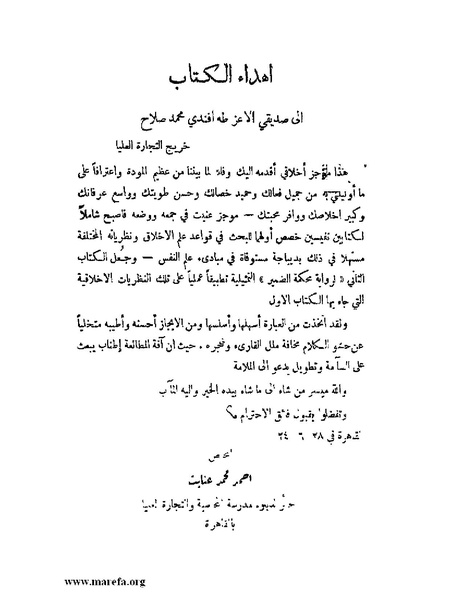 اهداء الكتاب
الى صديقي الاعز طه افندي محمد صلاح
خريج التجارة العليا
هذا موجز أخلاقي أقدمه اليك وفاء لما بيننا من عظيم المودة واعترافاً على
ما أوليتني به من جميل فعالك وحميد خصالك وحسن طويتك وواسع عرفانك
وكبير اخلاصك ووافر محبتك — موجز عنيت في جمعه ووضعه فاصبح شاملاً
لكتابين نفيسين خصص أولهما للبحث في قواعد علم الاخلاق ونظرياته المختلفة
مستهلا في ذلك بديباجة مستوفاة في مبادىء علم النفس — وجعل الكتاب
الثاني « لرواية محكمة الضمير » التمثيلية تطبيقاً عملياً على تلك النظريات الاخلاقية
التي جاء بها الكتاب الاول
ولقد اتخذت من العبارة أسهلها وأسلسها ومن الايجاز أحسنه وأطيبه متخلياً
عن حشو الكلام مخافة ملل القارىء وضجره . حيث ان آفة المطالعة إطناب يبعث
على السآمة وتطويل يدعو الى الملامة
والله ميسر من شاء الى ما شاء بيده الخير واليه المآب
وتفضلوا بقبول فائق الاحترام
القاهرة في ٢٨ ٦ ٢٤
المخلص
احمد محمد عنايت
حائز لدبلوم مدرسة المحاسبة والتجارة العليا
بالقاهرة
www.marefa.org